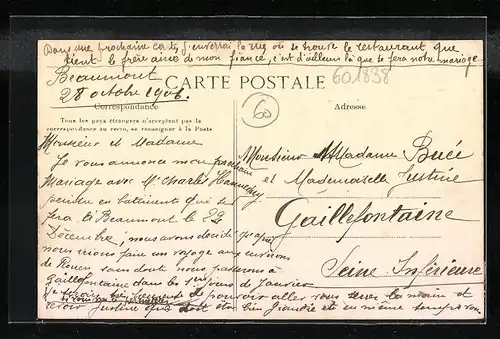 Dans une prochaine carte j'enverrai la vue où se trouve le restaurant que
tient le frère ainé de mon fiancé, c'est d'ailleurs là que se fera notre mariage
Beaumont
CARTE POSTALE
601838
28 octobre 1906.
Correspondance
Adresse
60
Tous les pays étrangers n'acceptent pas la
correspondance au verso, se renseigner à la Poste
Monsieur et Madame
Je vous annonce mon prochain
mariage avec Mr Charles
peintre en batiment qui se
fera à Beaumont le 22
Décembre, nous avons décidé qu'après
nous irions faire un voyage aux environs
de Rouen sans doute nous passerons à
Gaillefontaine dans les 1ers jours de Janvier
de pouvoir aller vous serrer la main et
revoir Justine qui doit être bien grandie et en même temps
Monsieur Madame Bucé
et Mademoiselle Justine
Gaillefontaine
Seine Inférieure